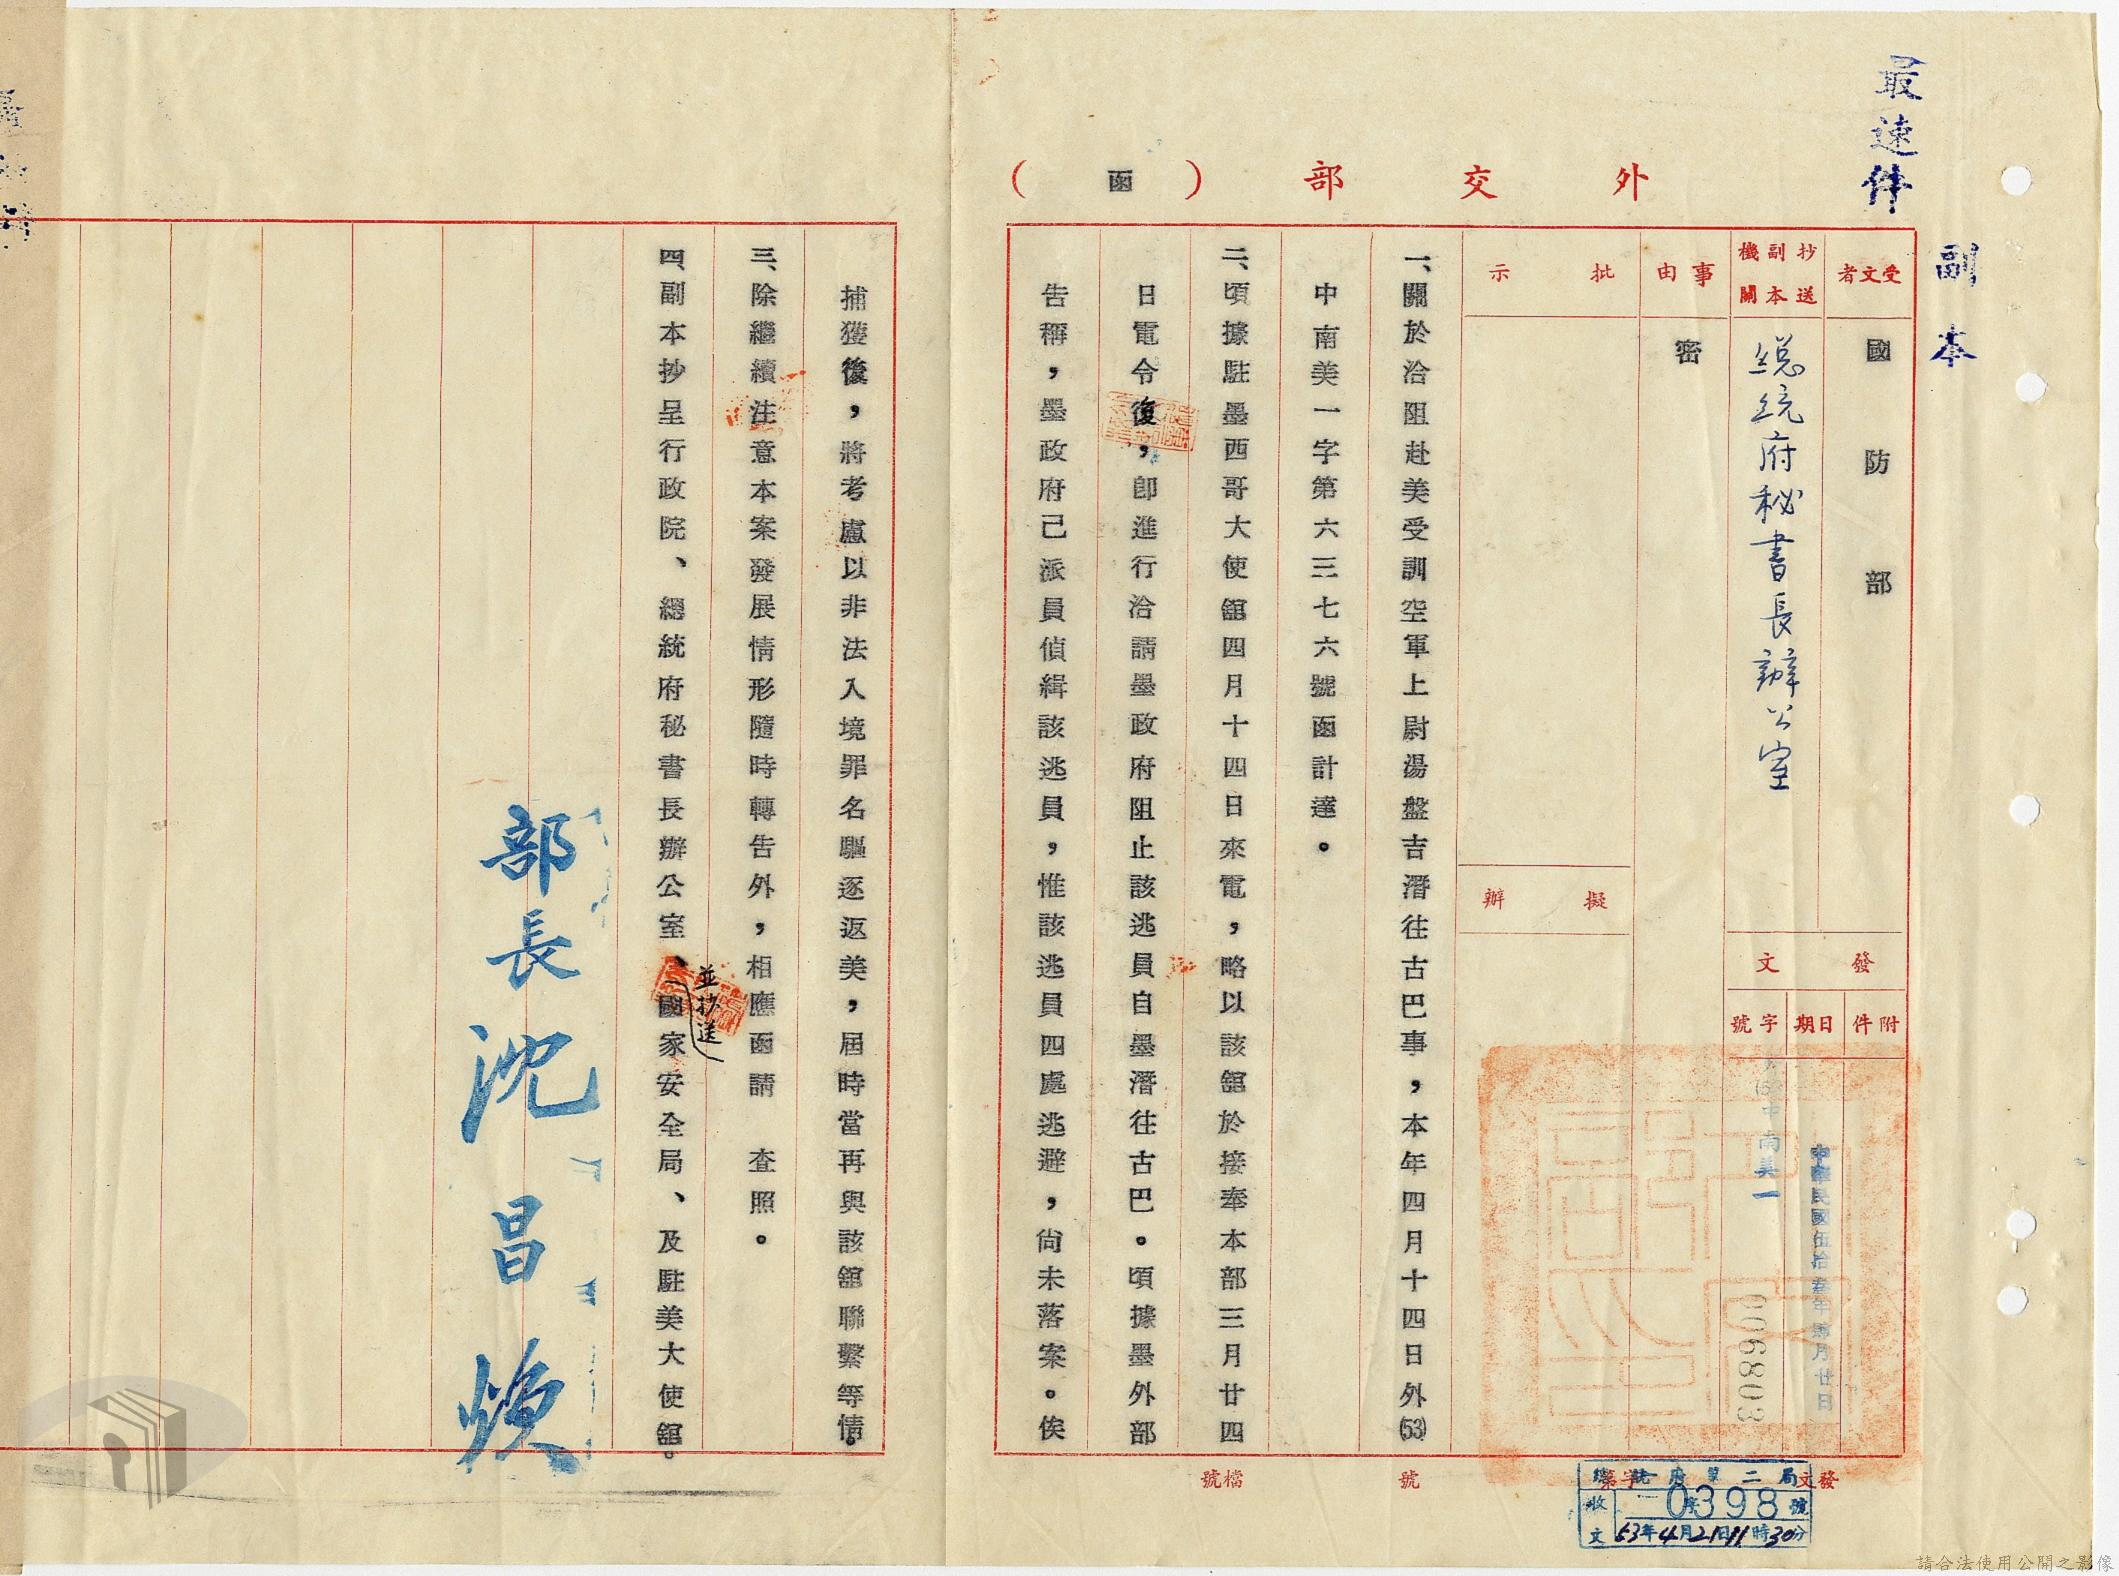 最速件
副本
外交部（函）
受文者
國防部
抄送副本機關
總統府秘書長辦公室
事由
密
批示
擬辦
發文
附件
日期
字號
中華民國伍拾叁年肆月廿日
外(53)中南美一
006803
一、關於洽阻赴美受訓空軍上尉湯盤吉潛往古巴事，本年四月十四日外(53)
中南美一字第六三七六號函計達。
二、頃據駐墨西哥大使舘四月十四日來電，略以該舘於接奉本部三月廿四
日電令復，卽進行洽請墨政府阻止該逃員自墨潛往古巴。頃據墨外部
告稱，墨政府已派員偵緝該逃員，惟該逃員四處逃避，尙未落案。俟
捕獲後，將考慮以非法入境罪名驅逐返美，屆時當再與該舘聯繫等情。
三、除繼續注意本案發展情形隨時轉告外，相應函請　查照。
四、副本抄呈行政院、總統府秘書長辦公室、
並抄送
國家安全局、及駐美大使舘。
部長沈昌煥
發文
字第
號
檔號
總統府第二局
收文
0398號
53年4月21日11時30分
請合法使用公開之影像